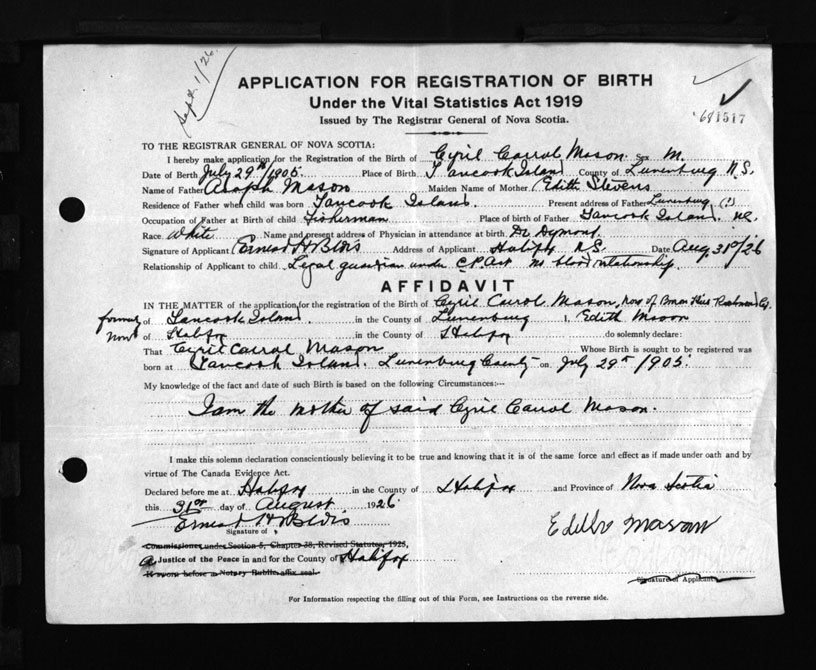 Sept 1/26.
APPLICATION FOR REGISTRATION OF BIRTH
Under the Vital Statistics Act 1919
Issued by The Registrar General of Nova Scotia.
TO THE REGISTRAR GENERAL OF NOVA SCOTIA:
I hereby make application for the Registration of the Birth of Cyril Carrol Mason. Sex M.
Date of Birth July 29th/1905. Place of Birth Tancook Island County of Lunenburg N.S.
Name of Father Mason Maiden Name of Mother Edith Stevens
Residence of Father when child was born Tancook Island. Present address of Father Lunenburg (?)
Occupation of Father at Birth of child Fisherman Place of birth of Father Tancook Island. N.S.
Race White Name and present address of Physician in attendance at birth Dr Dymond.
Signature of Applicant Ernest H Blois Address of Applicant Halifax N.S. Date Aug. 31st/26
Relationship of Applicant to child Legal guardian under C.P. Act no blood relationship.
AFFIDAVIT
IN THE MATTER of the application for the registration of the Birth of Cyril Carrol Mason, now of
formerly of Tancook Island in the County of Lunenburg I, Edith Mason
now of Halifax in the County of Halifax do solemnly declare:
That Cyril Carrol Mason Whose Birth is sought to be registered was
born at Tancook Island. Lunenburg County on July 29th 1905.
My knowledge of the fact and date of such Birth is based on the following Circumstances:—
I am the mother of said Cyril Carrol Mason.
I make this solemn declaration conscientiously believing it to be true and knowing that it is of the same force and effect as if made under oath and by
virtue of The Canada Evidence Act.
Declared before me at Halifax in the County of Halifax and Province of Nova Scotia
this 31st day of August 1926
Ernest H Blois
Signature of
Edith Mason
Commissioner under Section 5, Chapter 38, Revised Statutes, 1923,
A Justice of the Peace in and for the County of Halifax
If sworn before a Notary Public affix seal.
Signature of Applicant
For Information respecting the filling out of this Form, see Instructions on the reverse side.